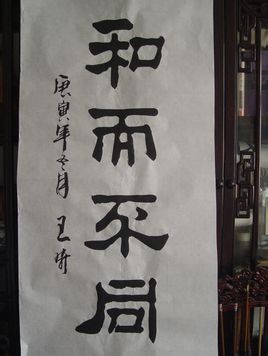 和而不同
庚寅年冬月 王